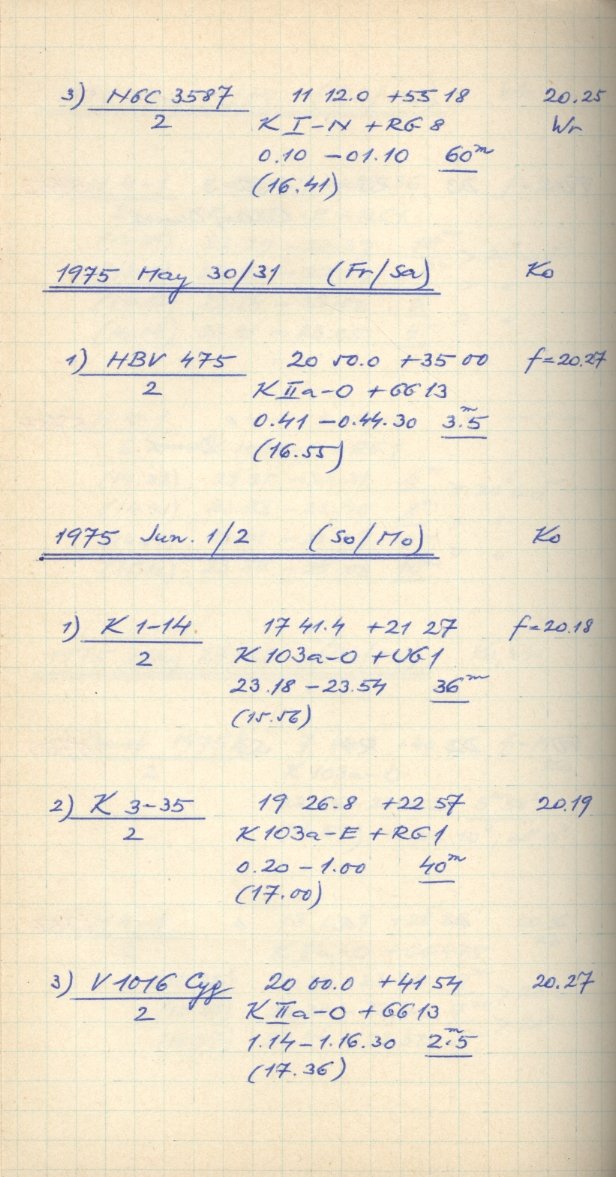 3) NGC 3587 11 12.0 +55 18 20.25
2 K I-N + RG 8 Wr
0.10 - 01.10 60m
(16.41)
1975 May 30/31 (Fr/Sa) Ko
1) HBV 475 20 50.0 +35 00 f=20.27
2 K IIa-O + GG 13
0.41 - 0.44.30 3m.5
(16.55)
1975 Jun. 1/2 (So/Mo) Ko
1) K 1-14 17 41.4 +21 27 f=20.18
2 K 103a-O + UG1
23.18 - 23.54 36m
(15.56)
2) K 3-35 19 26.8 +22 57 20.19
2 K 103a-E + RG1
0.20 - 1.00 40m
(17.00)
3) V 1016 Cyg 20 00.0 +41 54 20.27
2 K IIa-O + GG 13
1.14 - 1.16.30 2m.5
(17.36)